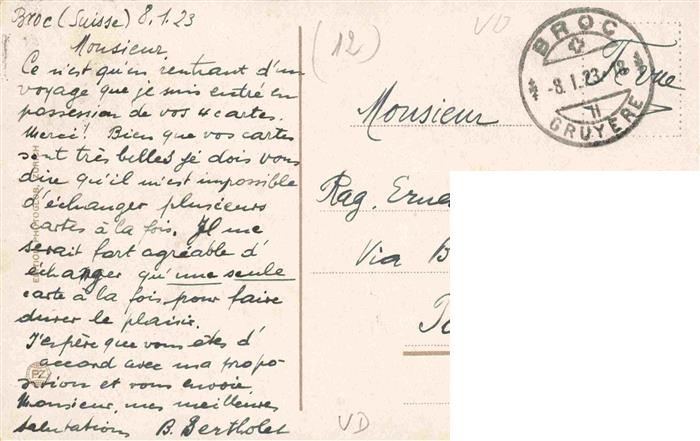 Broc (Suisse) 8.1.23
Monsieur
Ce n'est qu'en rentrant d'un
voyage que je suis entré en
possession de vos 4 cartes.
Merci! Bien que vos cartes
sont très belles je dois vous
dire qu'il m'est impossible
d'échanger plusieurs
cartes à la fois. Il me
serait fort agréable d'
échanger qu'une seule
carte à la fois pour faire
durer le plaisir.
J'espère que vous êtes d'
accord avec ma propo-
sition et vous envoie
Monsieur, mes meilleures
salutations B. Bertholet
(12)
VD
BROC
8.1.23
GRUYÈRE
Monsieur
Rag.
Via B
VD
PZ